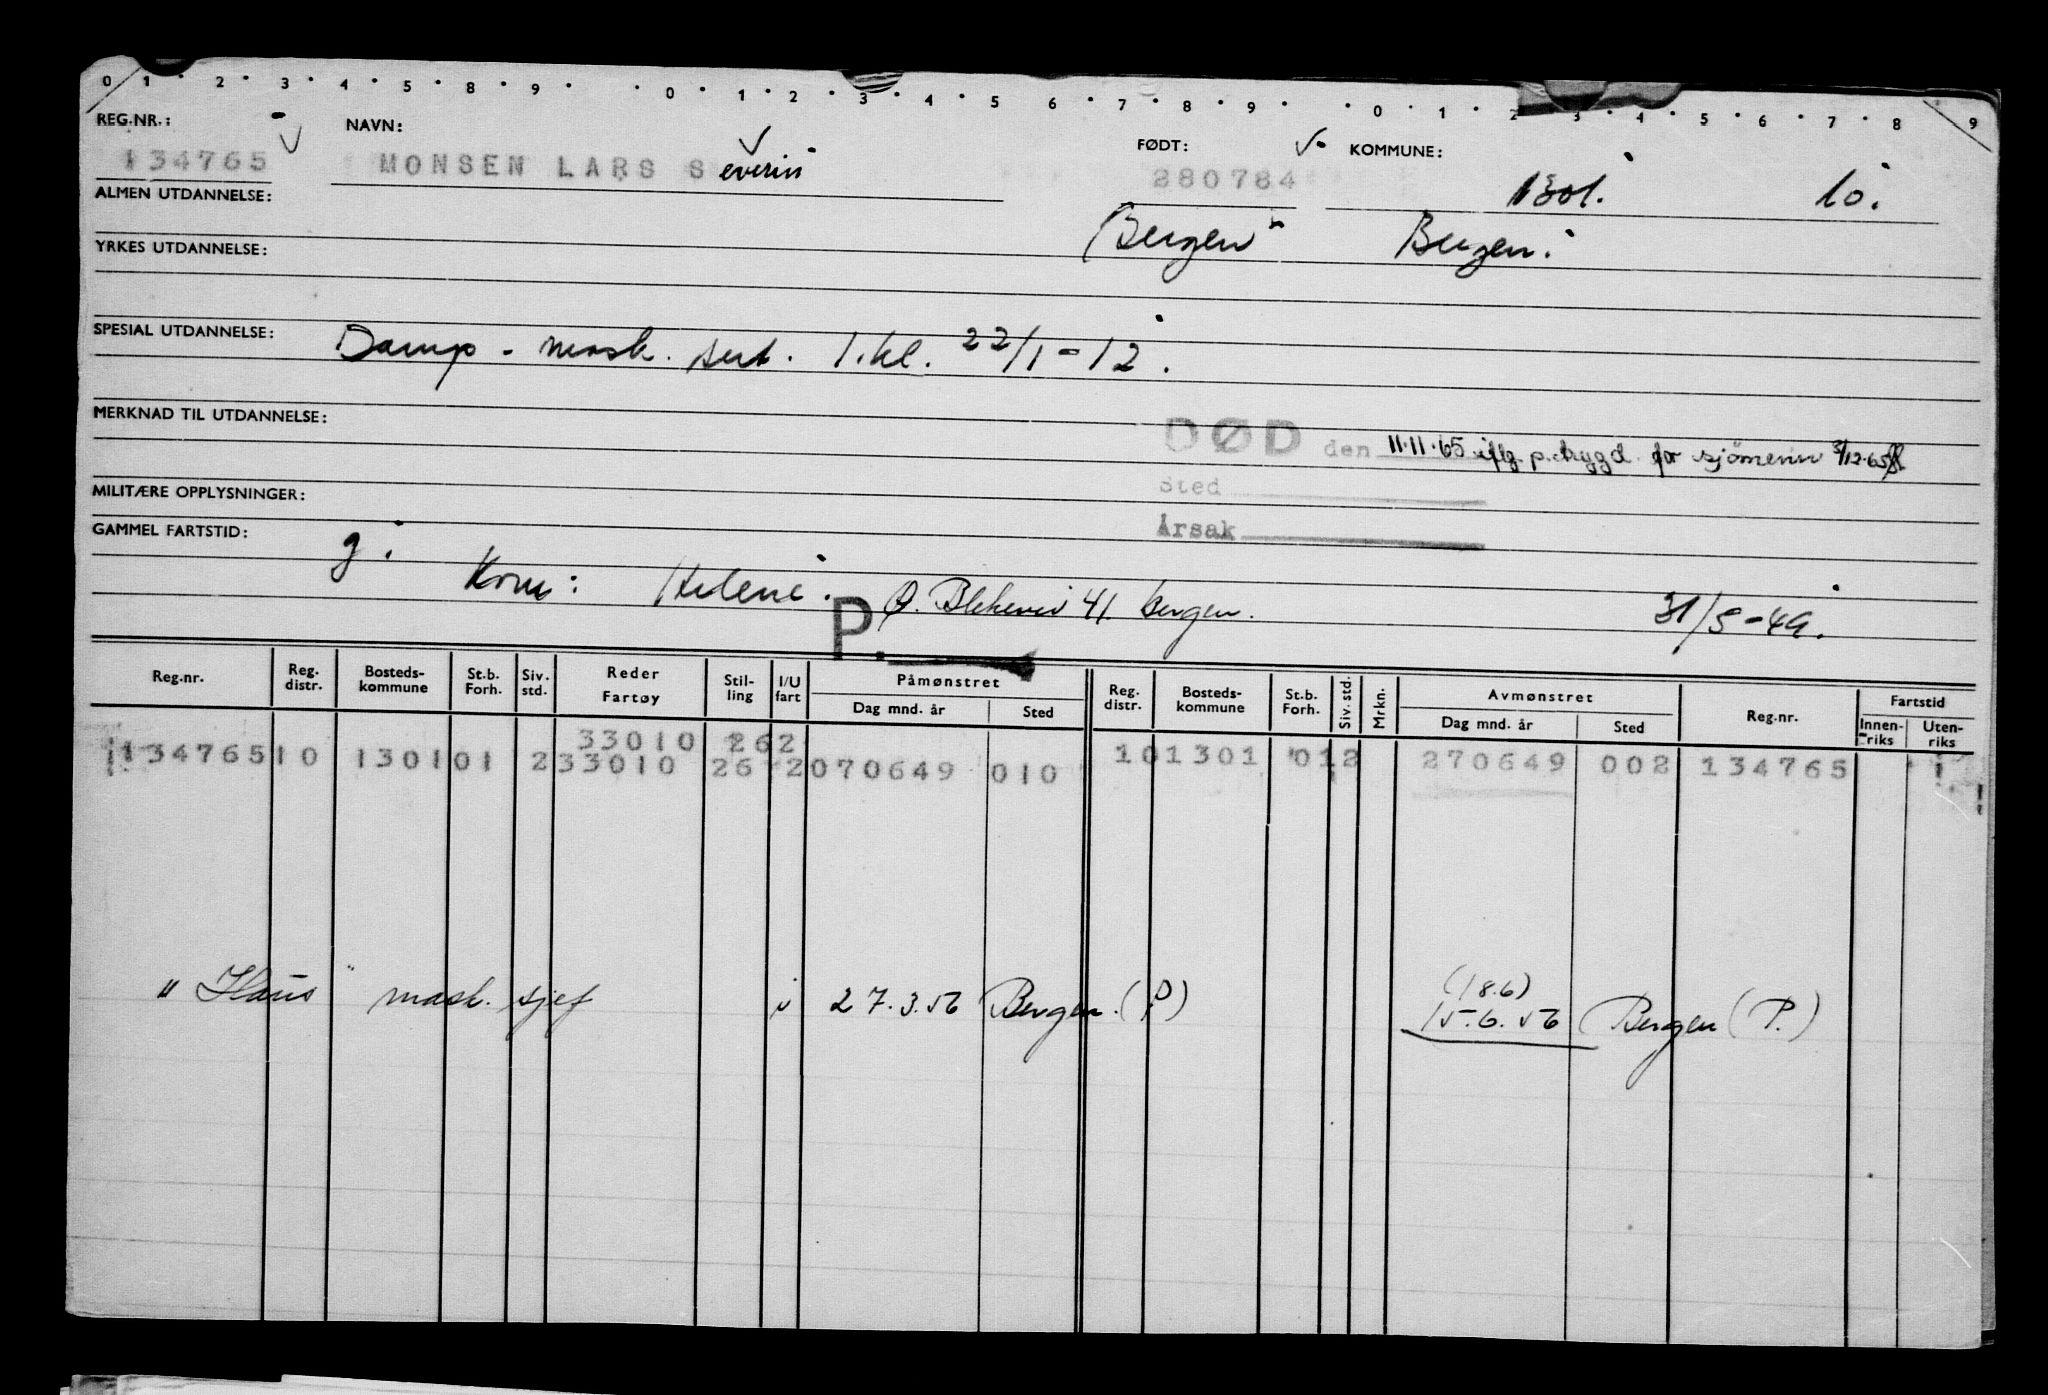 0 1 2 3 4 5 8 9 0 1 2 3 4 5 6 7 8 9 0 1 2 3 4 5 6 7 8 9
REG.NR.: NAVN: FØDT: KOMMUNE:
134765 MONSEN LARS Severin 280784 1301. 10.
ALMEN UTDANNELSE:
Bergen Bergen.
YRKES UTDANNELSE:
SPESIAL UTDANNELSE: Damp - mask. sert. 1.kl. 22/1-12.
MERKNAD TIL UTDANNELSE:
DØD den 11.11.65 iflg. p.trygd for sjömenn 3/12.65
MILITÆRE OPPLYSNINGER:
Sted
GAMMEL FARTSTID: g.
Årsak
Kone: Helene. Ø. Blekevei 41. Bergen. 31/5-49.
P.
Reg.nr. Reg. distr. Bosteds-kommune St.b. Forh. Siv. std. Reder Fartøy Stil-ling I/U fart Påmønstret Dag mnd. år Sted Reg. distr. Bosteds-kommune St.b. Forh. Siv. std. Mrkn. Avmønstret Dag mnd. år Sted Reg.nr. Fartstid Innen-riks Uten-riks
33010 262
134765 10 1301 01 2 33010 26 2 070649 010 10 1301 01 2 270649 002 134765 1
(18.6)
"Haus" mask. sjef i 27.3.56 Bergen. (P) 15.6.56 Bergen (P.)